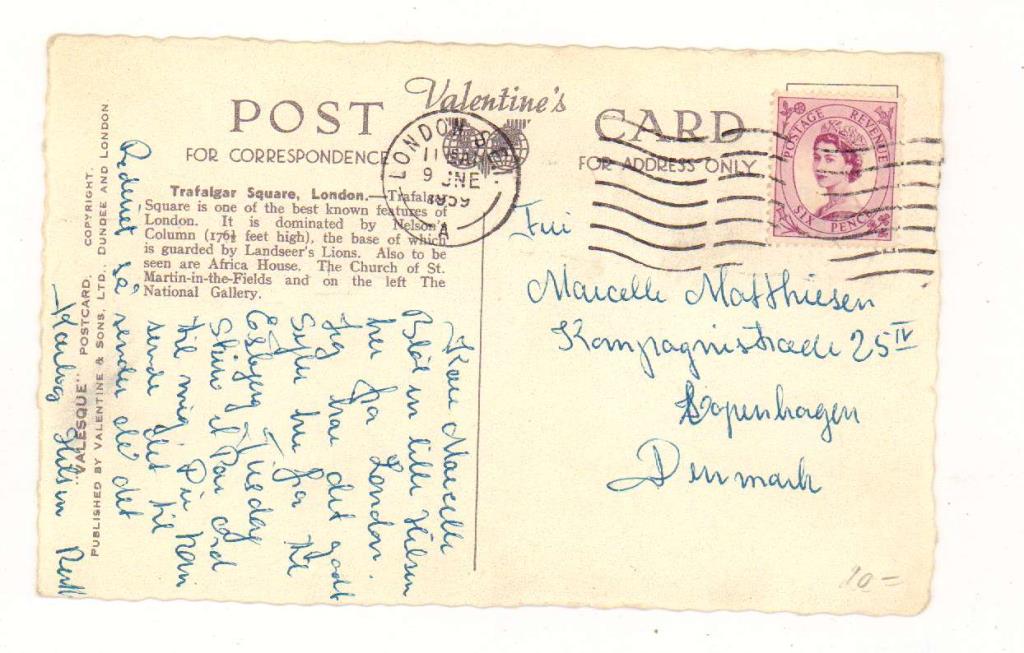 POST
Valentine's
CARD
FOR CORRESPONDENCE
FOR ADDRESS ONLY
Trafalgar Square, London.—Trafalgar
Square is one of the best known features of
London. It is dominated by Nelson's
Column (176½ feet high), the base of which
is guarded by Landseer's Lions. Also to be
seen are Africa House. The Church of St.
Martin-in-the-Fields and on the left The
National Gallery.
LONDON
9 JNE
1959
A
POSTAGE REVENUE
SIX PENCE
"VALESQUE" POSTCARD. COPYRIGHT.
PUBLISHED BY VALENTINE & SONS, LTD., DUNDEE AND LONDON
Kære Marcelle
Blot en lille Hilsen
her fra London.
Jeg har det godt
fra til
Esbjerg
Skriv et
til mig
sende det til
det
Hilsen
Marcelle Matthiesen
Kompagnistræde 25 IV
Copenhagen
Denmark
10=